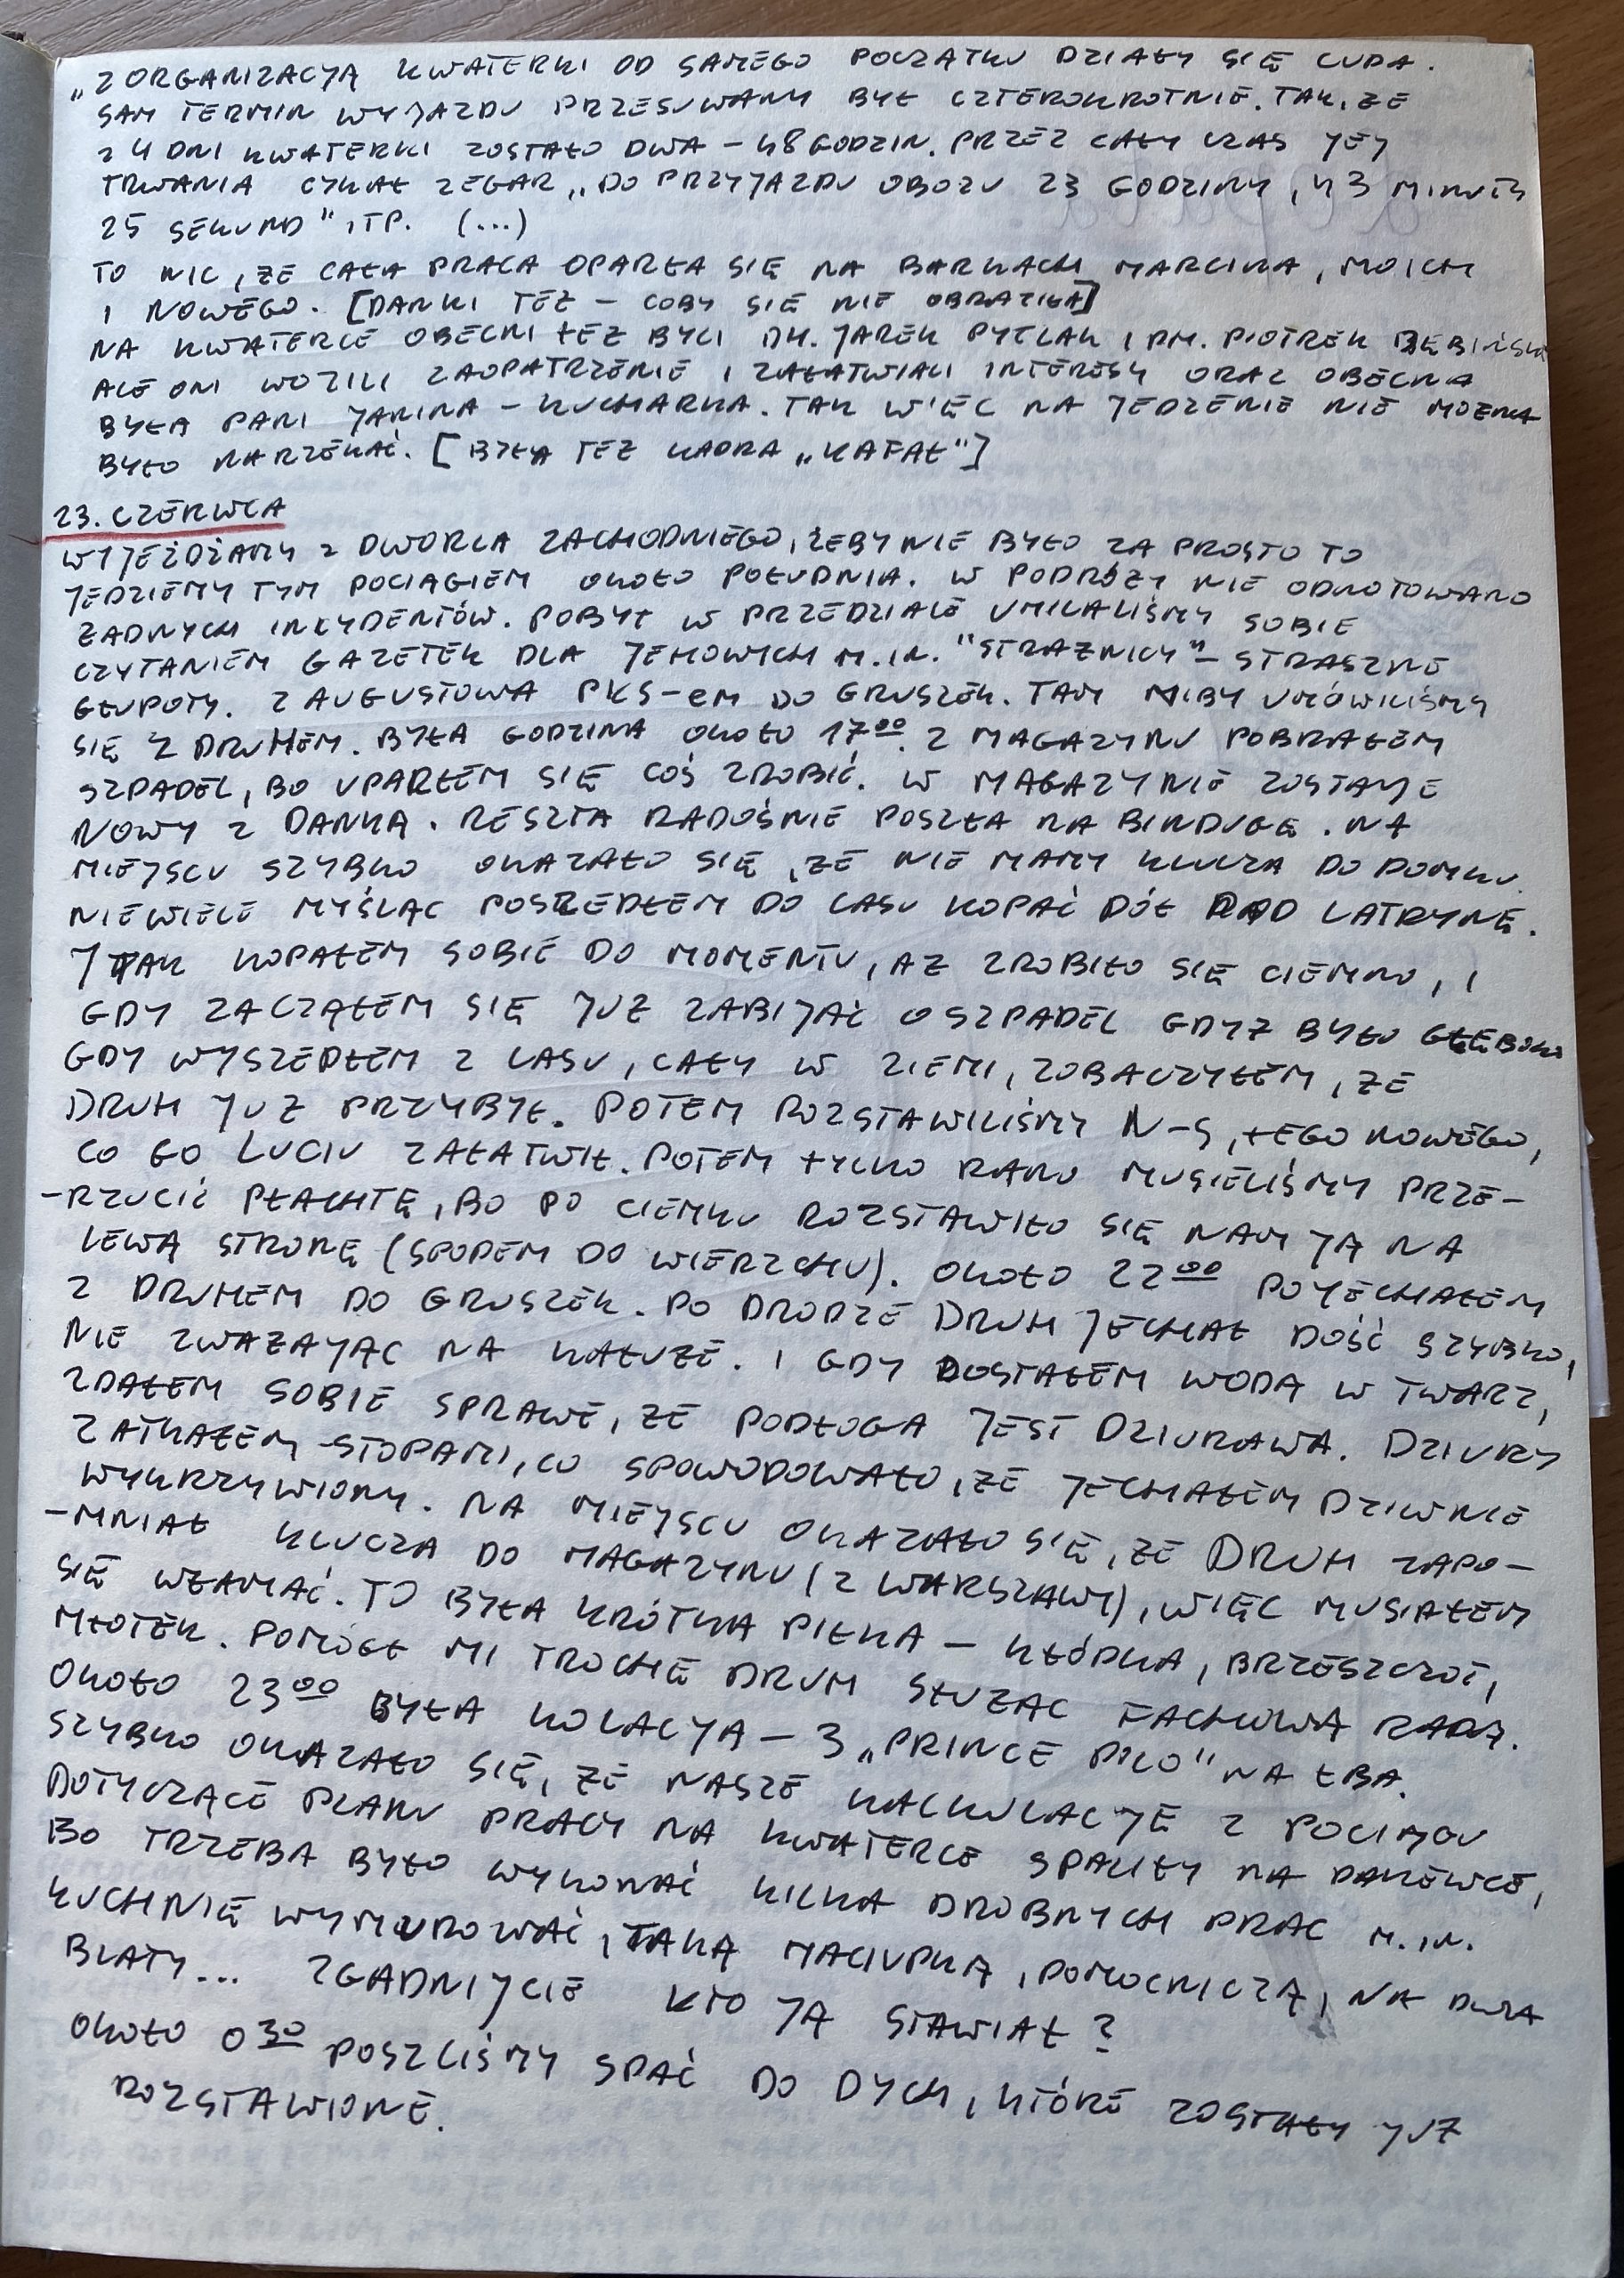 „Z ORGANIZACJĄ KWATERKI OD SAMEGO POCZĄTKU DZIAŁY SIĘ CUDA.
SAM TERMIN WYJAZDU PRZESUWANY BYŁ CZTEROKROTNIE. TAK, ŻE
Z 4 DNI KWATERKI ZOSTAŁO DWA – 48 GODZIN. PRZEZ CAŁY CZAS JEJ
TRWANIA CYKAŁ ZEGAR „DO PRZYJAZDU OBOZU 23 GODZINY, 43 MINUTY
25 SEKUND" ITP. (...)
TO NIC, ŻE CAŁA PRACA OPARŁA SIĘ NA BARKACH MARCINA, MOICH
I NOWEGO. [DANKI TEŻ – COBY SIĘ NIE OBRAZIŁA]
NA KWATERCE OBECNI TEŻ BYLI DH. JAREK PYTLAK I PM. PIOTREK
ALE ONI WOZILI ZAOPATRZENIE I ZAŁATWIALI INTERESY ORAZ OBECNA
BYŁA PANI JANINA – KUCHARKA. TAK WIĘC NA JEDZENIE NIE MOŻNA
BYŁO NARZEKAĆ. [BYŁA TEŻ KADRA „KAFAŁ"]
23. CZERWCA
WYJEŻDŻAMY Z DWORCA ZACHODNIEGO, ŻEBY NIE BYŁO ZA PROSTO TO
JEDZIEMY TYM POCIĄGIEM OKOŁO POŁUDNIA. W PODRÓŻY NIE ODNOTOWANO
ŻADNYCH INCYDENTÓW. POBYT W PRZEDZIALE UMILALIŚMY SOBIE
CZYTANIEM GAZETEK DLA JEHOWYCH M.IN. "STRAŻNICY" – STRASZNE
GŁUPOTY. Z AUGUSTOWA PKS-em DO GRUSZEK. TAM NIBY UMÓWILIŚMY
SIĘ Z DRUHEM. BYŁA GODZINA OKOŁO 17⁰⁰. Z MAGAZYNU POBRAŁEM
SZPADEL, BO UPARŁEM SIĘ COŚ ZROBIĆ. W MAGAZYNIE ZOSTAJE
NOWY Z DANKĄ. RESZTA RADOŚNIE POSZŁA NA BINDUGĘ. NA
MIEJSCU SZYBKO OKAZAŁO SIĘ, ŻE NIE MAMY KLUCZA DO DOMKU.
NIEWIELE MYŚLĄC POSZEDŁEM DO LASU KOPAĆ DÓŁ POD LATRYNĘ.
I TAK KOPAŁEM SOBIE DO MOMENTU, AŻ ZROBIŁO SIĘ CIEMNO, I
GDY ZACZĄŁEM SIĘ JUŻ ZABIJAĆ O SZPADEL GDYŻ BYŁO GŁĘBOKO
GDY WYSZEDŁEM Z LASU, CAŁY W ZIEMI, ZOBACZYŁEM, ŻE
DRUH JUŻ PRZYBYŁ. POTEM ROZSTAWILIŚMY N-S, TEGO NOWEGO,
CO GO LUCIU ZAŁATWIŁ. POTEM TYLKO RANO MUSIELIŚMY PRZE-
-RZUCIĆ PŁACHTĘ, BO PO CIEMKU ROZSTAWIŁO SIĘ NAM JĄ NA
LEWĄ STRONĘ (SPODEM DO WIERZCHU). OKOŁO 22⁰⁰ POJECHAŁEM
Z DRUHEM DO GRUSZEK. PO DRODZE DRUH JECHAŁ DOŚĆ SZYBKO,
NIE ZWAŻAJĄC NA KAŁUŻE. I GDY DOSTAŁEM WODĄ W TWARZ,
ZDAŁEM SOBIE SPRAWĘ, ŻE PODŁOGA JEST DZIURAWA. DZIURY
ZATKAŁEM STOPAMI, CO SPOWODOWAŁO, ŻE JECHAŁEM DZIWNIE
WYKRZYWIONY. NA MIEJSCU OKAZAŁO SIĘ, ŻE DRUH ZAPO-
-MNIAŁ KLUCZA DO MAGAZYNU (Z WARSZAWY), WIĘC MUSIAŁEM
SIĘ WŁAMAĆ. TO BYŁA KRÓTKA PIŁKA – KŁÓDKA, BRZESZCZOT,
MŁOTEK. POMÓGŁ MI TROCHĘ DRUH SŁUŻĄC FACHOWĄ RADĄ.
OKOŁO 23⁰⁰ BYŁA KOLACJA – 3 „PRINCE POLO" NA ŁBA.
SZYBKO OKAZAŁO SIĘ, ŻE NASZE KALKULACJE Z POCIĄGU
DOTYCZĄCE PLANU PRACY NA KWATERCE SPALIŁY NA PANEWCE,
BO TRZEBA BYŁO WYKONAĆ KILKA DROBNYCH PRAC M.IN.
KUCHNIĘ WYMUROWAĆ, TAKĄ MALUPKĄ, POMOCNICZĄ, NA DWA
BLATY... ZGADNIJCIE KTO JĄ STAWIAŁ?
OKOŁO 0³⁰ POSZLIŚMY SPAĆ DO DYCH, KTÓRE ZOSTAŁY JUŻ
ROZSTAWIONE.